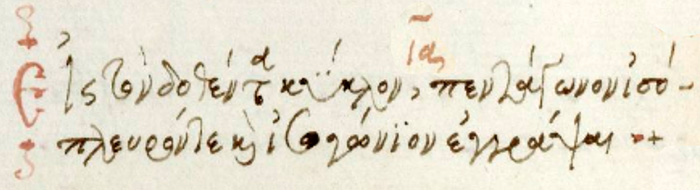 ια
Εἰς τὸν δοθέντα κύκλον, πεντάγωνον ἰσό-
πλευρόν τε κὶ ἰσογώνϊον ἐγγράψαι :+